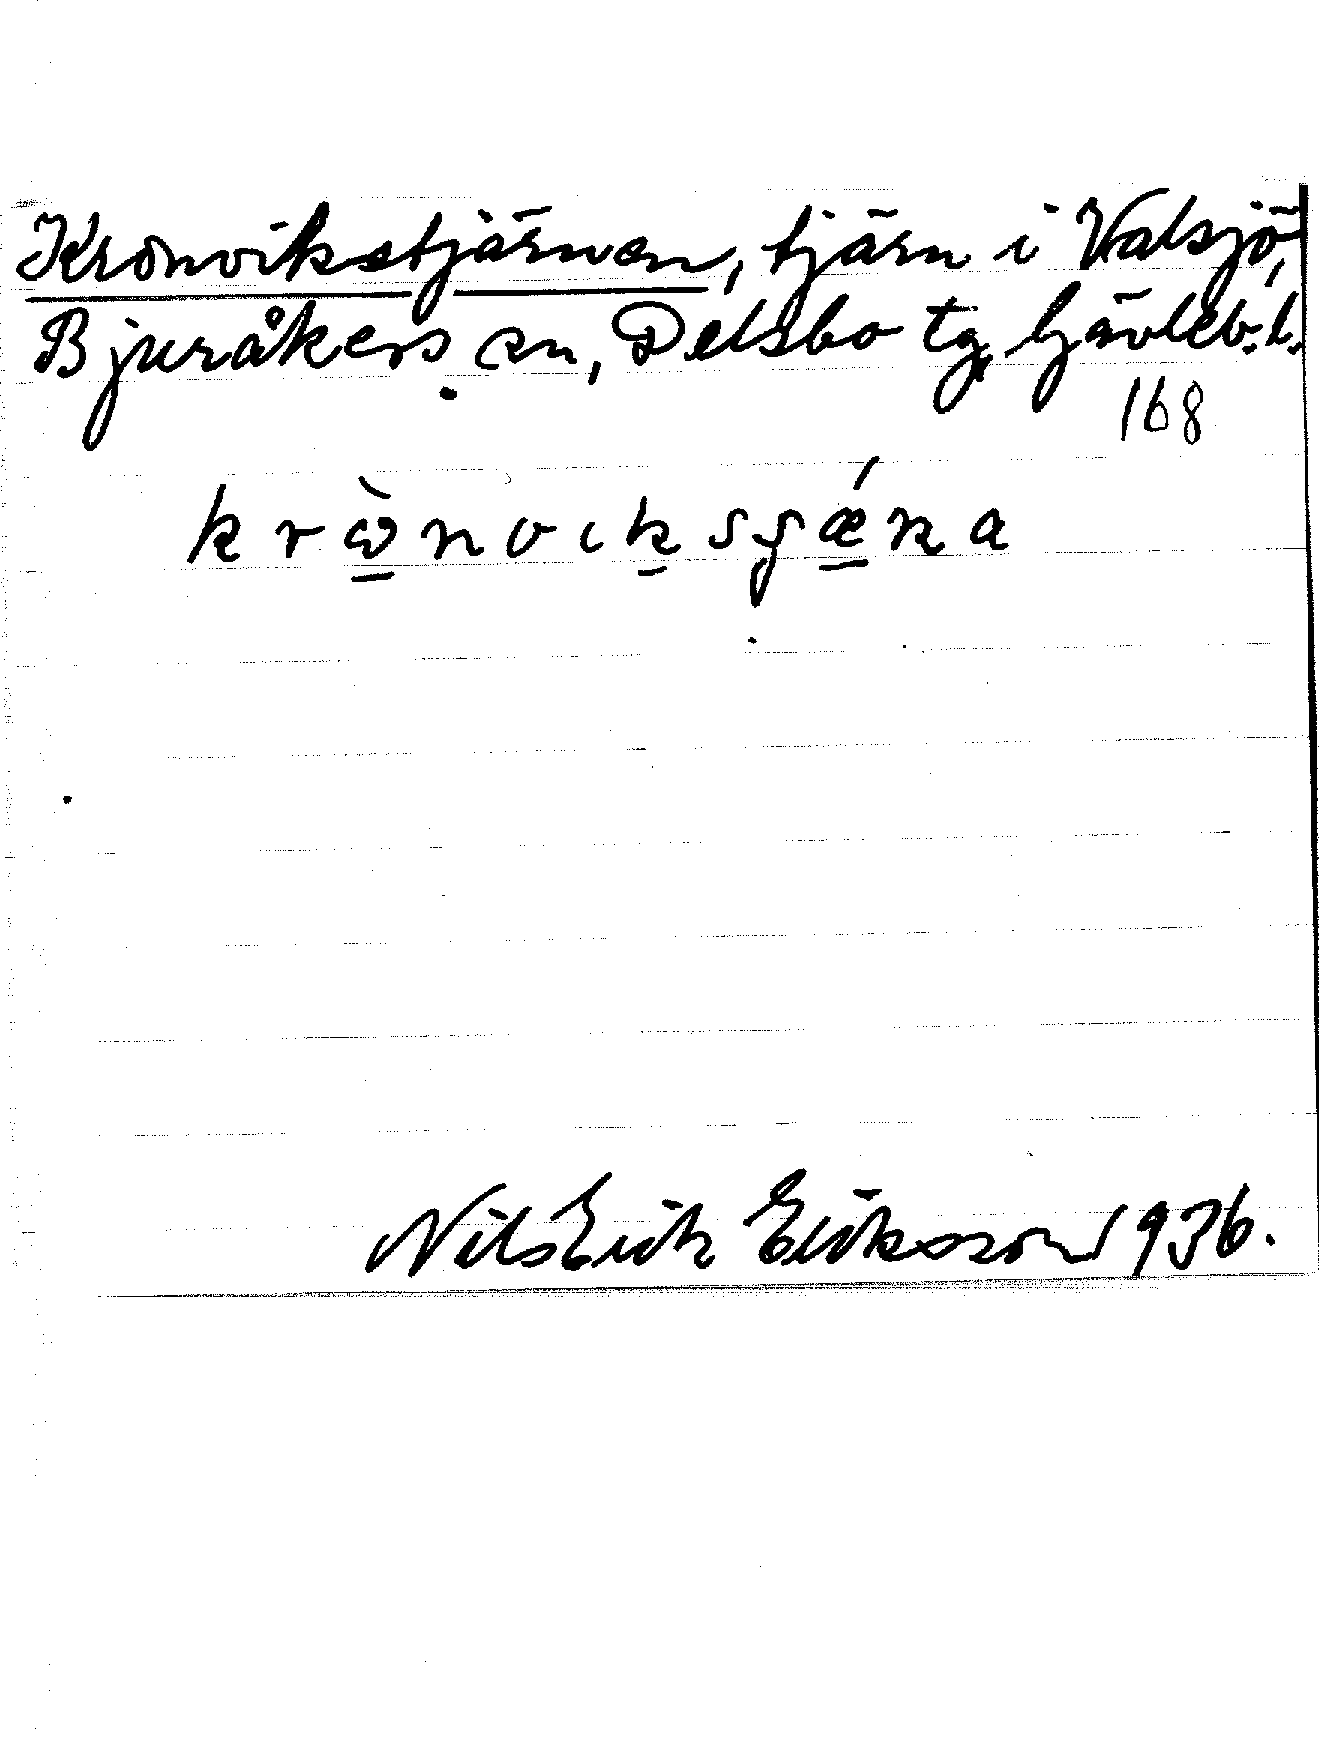 Kronvikstjärnen, tjärn i Valsjö,
Bjuråkers sn, Delsbo tg, Gävleb. l.
168
Nils Erik Eriksson 1936.